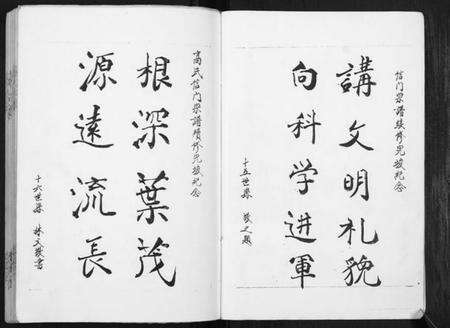 信门宗谱续修完竣纪念
講文明礼貌
向科学进軍
十五世孫
高氏信门宗譜續修完竣纪念
根深葉茂
源遠流長
十六世孫 林文